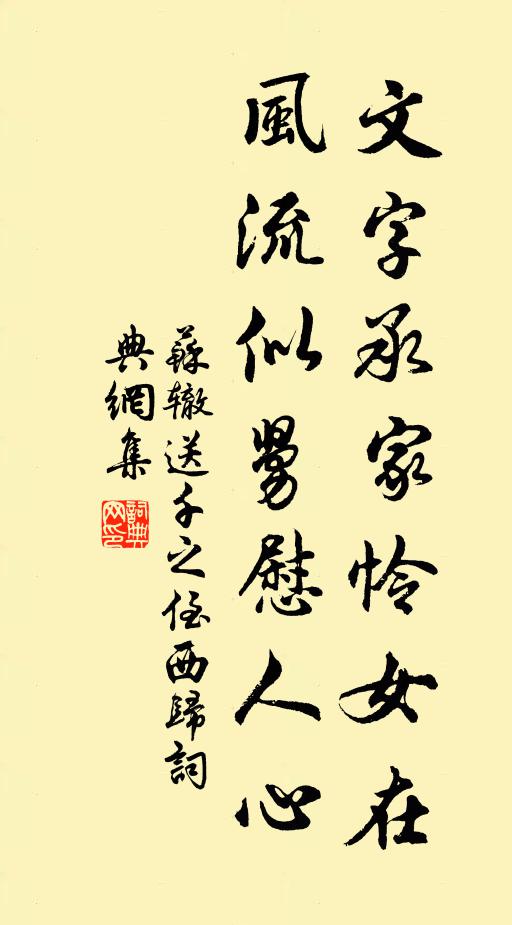 文字承家怜女在
風流似舅慰人心
蘇轍送千之侄西歸詞
典網集
詞典网印